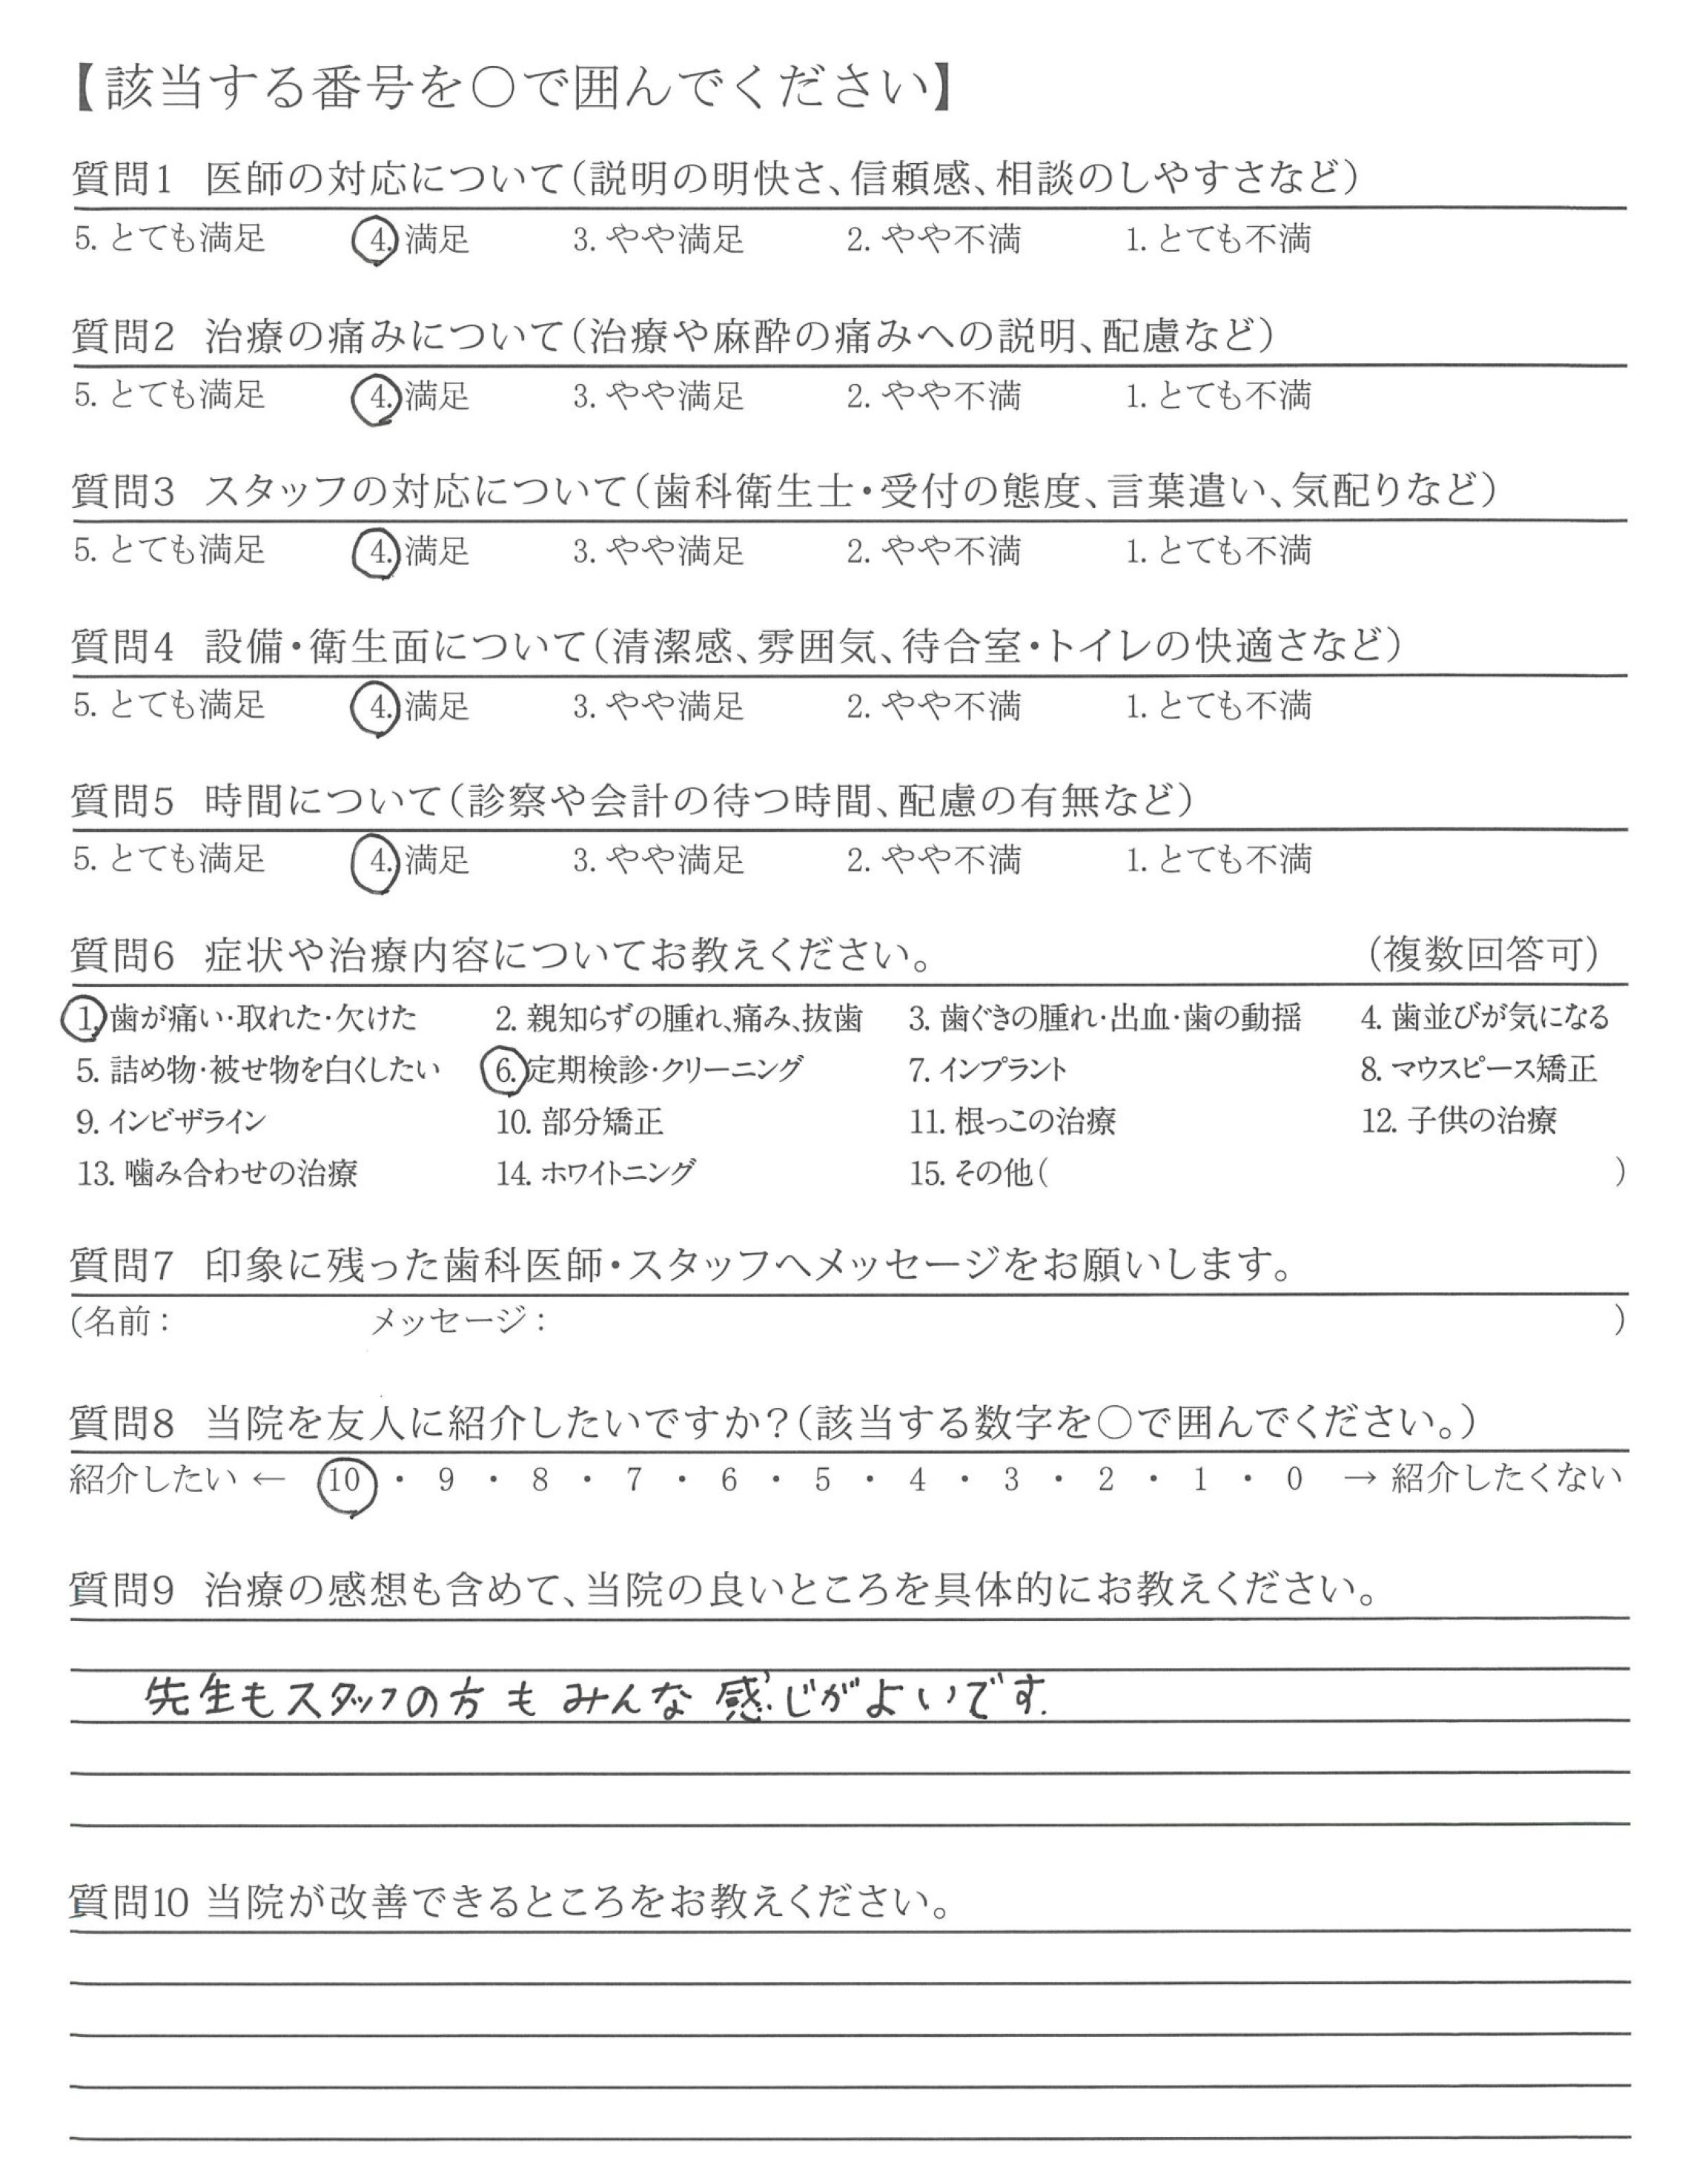 【該当する番号を○で囲んでください】
質問1 医師の対応について（説明の明快さ、信頼感、相談のしやすさなど）
5. とても満足 4. 満足 3. やや満足 2. やや不満 1. とても不満
質問2 治療の痛みについて（治療や麻酔の痛みへの説明、配慮など）
5. とても満足 4. 満足 3. やや満足 2. やや不満 1. とても不満
質問3 スタッフの対応について（歯科衛生士・受付の態度、言葉遣い、気配りなど）
5. とても満足 4. 満足 3. やや満足 2. やや不満 1. とても不満
質問4 設備・衛生面について（清潔感、雰囲気、待合室・トイレの快適さなど）
5. とても満足 4. 満足 3. やや満足 2. やや不満 1. とても不満
質問5 時間について（診察や会計の待つ時間、配慮の有無など）
5. とても満足 4. 満足 3. やや満足 2. やや不満 1. とても不満
質問6 症状や治療内容についてお教えください。 （複数回答可）
1. 歯が痛い・取れた・欠けた 2. 親知らずの腫れ、痛み、抜歯 3. 歯ぐきの腫れ・出血・歯の動揺 4. 歯並びが気になる
5. 詰め物・被せ物を白くしたい 6. 定期検診・クリーニング 7. インプラント 8. マウスピース矯正
9. インビザライン 10. 部分矯正 11. 根っこの治療 12. 子供の治療
13. 噛み合わせの治療 14. ホワイトニング 15. その他（ ）
質問7 印象に残った歯科医師・スタッフへメッセージをお願いします。
（名前： メッセージ： ）
質問8 当院を友人に紹介したいですか？（該当する数字を○で囲んでください。）
紹介したい ← 10 ・ 9 ・ 8 ・ 7 ・ 6 ・ 5 ・ 4 ・ 3 ・ 2 ・ 1 ・ 0 → 紹介したくない
質問9 治療の感想も含めて、当院の良いところを具体的にお教えください。
先生もスタッフの方も みんな 感じがよいです.
質問10 当院が改善できるところをお教えください。